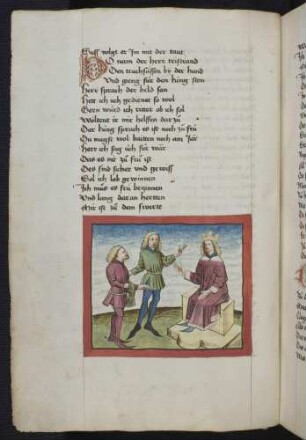 Suss volgt er Im mit der taut
Do nam der herr tristrand
Den truchsässen by der hand
Und gieng für den küng sten
Herr sprach der held san
Hett ich üch gedienet so wol
Gern würd ich ritter ob ich sol
Woltend ir mir helffen dar zů
Der küng sprach es ist noch zů frů
Du magst wol baitten noch ain Jar
Herr ich sag üch für war
Das es nit zů frů ist
Des sind sicher und gewiss
Sol ich lob gewinnen
Ich můs es frů beginnen
Und lang dar an hertten
Mir ist zů dem swertte